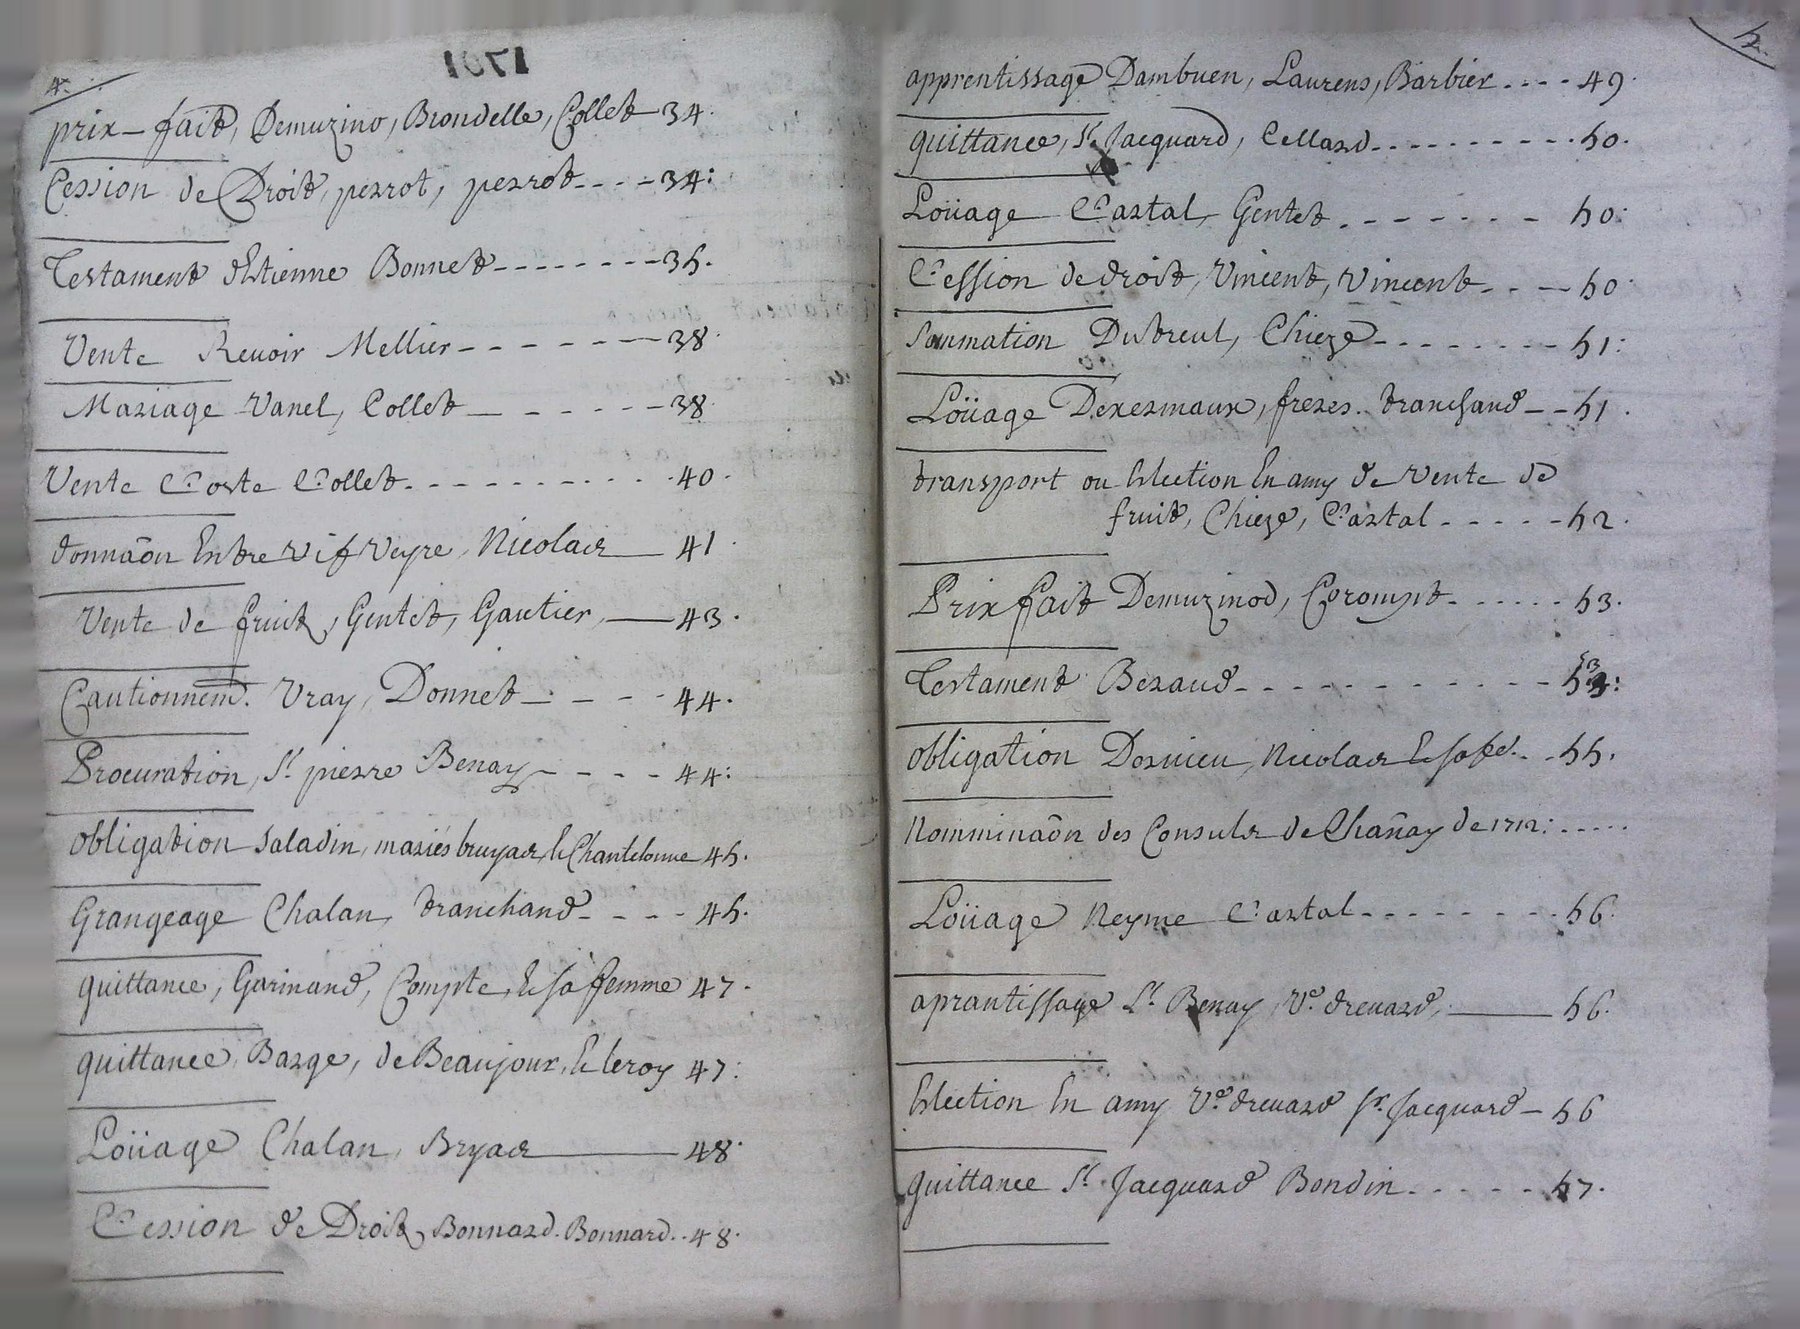 4.
1701
prix-fait, Demuzino, Brondelle, Collet 34.
Cession de Droit, perrot, perrot 34:
Testament d'Etienne Bonnet 35.
Vente Revoir Mellier 38.
Mariage Vanel, Collet 38
Vente Coste Collet 40.
donnaôn Entre vif Veyre, Nicolas 41.
Vente de fruit, Gentet, Gautier, 43.
Cautionnem̄t. Vray, Donnet 44.
Procuration, Sr. pierre Benay 44:
obligation Saladin, mariés bruyas, & Chantelouve 45.
Grangeage Chalan, tranchand 45.
quittance, Garinand, Compte, & sa femme 47.
quittance, Barge, de Beaujour, & leroy 47:
Loüage Chalan, Bryas 48.
Cession de Droit, Bonnard. Bonnard. 48.
5.
apprentissage Dambuen, Laurens, Barbier 49.
quittance, Sr. Jacquard, Cellard 50.
Loüage Cartal, Gentet 50:
Cession de droit, Vincent, Vincent 50.
Sommation Dubreul, Chieze 51:
Loüage Dexermaux, freres. tranchand 51.
transport ou Election En amy de Vente de
fruit, Chieze, Cartal 52.
Prix fait Demuzinod, Corompt 53.
Testament Beraud 53:
obligation Dornieu, Nicolas & sa fe. 55.
Nomminaôn des Consuls de Chañay de 1712:
Loüage Neyme Cartal 56.
aprantissage Sr. Benay, Ve. drevard, 56.
Election En amy Ve. drevard Sr. Jacquard 56
quittance Sr. Jacquard Bondin 57.